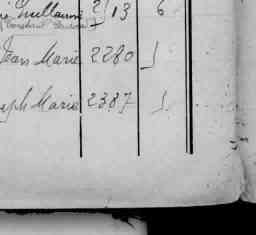 Guillaume 2213 6
Jean Marie 2280 1
eph Marie 2387 1